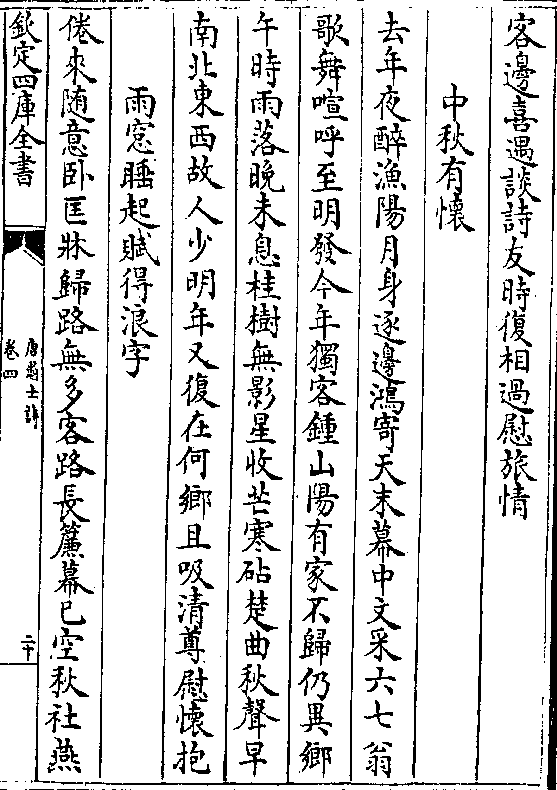 客邊喜遇談詩友時復相過慰旅情
中秋有懷
去年夜醉漁陽月身逐邊鴻寄天末幕中文采六七翁
歌舞喧呼至明發今年獨客鍾山陽有家不歸仍異鄉
午時雨落晚未息桂樹無影星收芒寒砧楚曲秋聲早
南北東西故人少明年又復在何鄉且吸清尊慰懷抱
雨窓睡起賦得浪字
倦來随意卧匡牀歸路無多客路長簾幕已空秋社燕
欽定四庫全書
卷四
二十